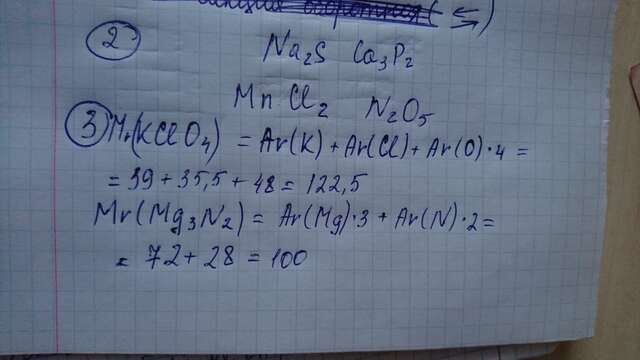 (⇆)
2 Na₂S Ca₃P₂
MnCl₂ N₂O₅
3 Mr(KClO₄) = Ar(K) + Ar(Cl) + Ar(O)·4 =
= 39 + 35,5 + 48 = 122,5
Mr(Mg₃N₂) = Ar(Mg)·3 + Ar(N)·2 =
= 72 + 28 = 100